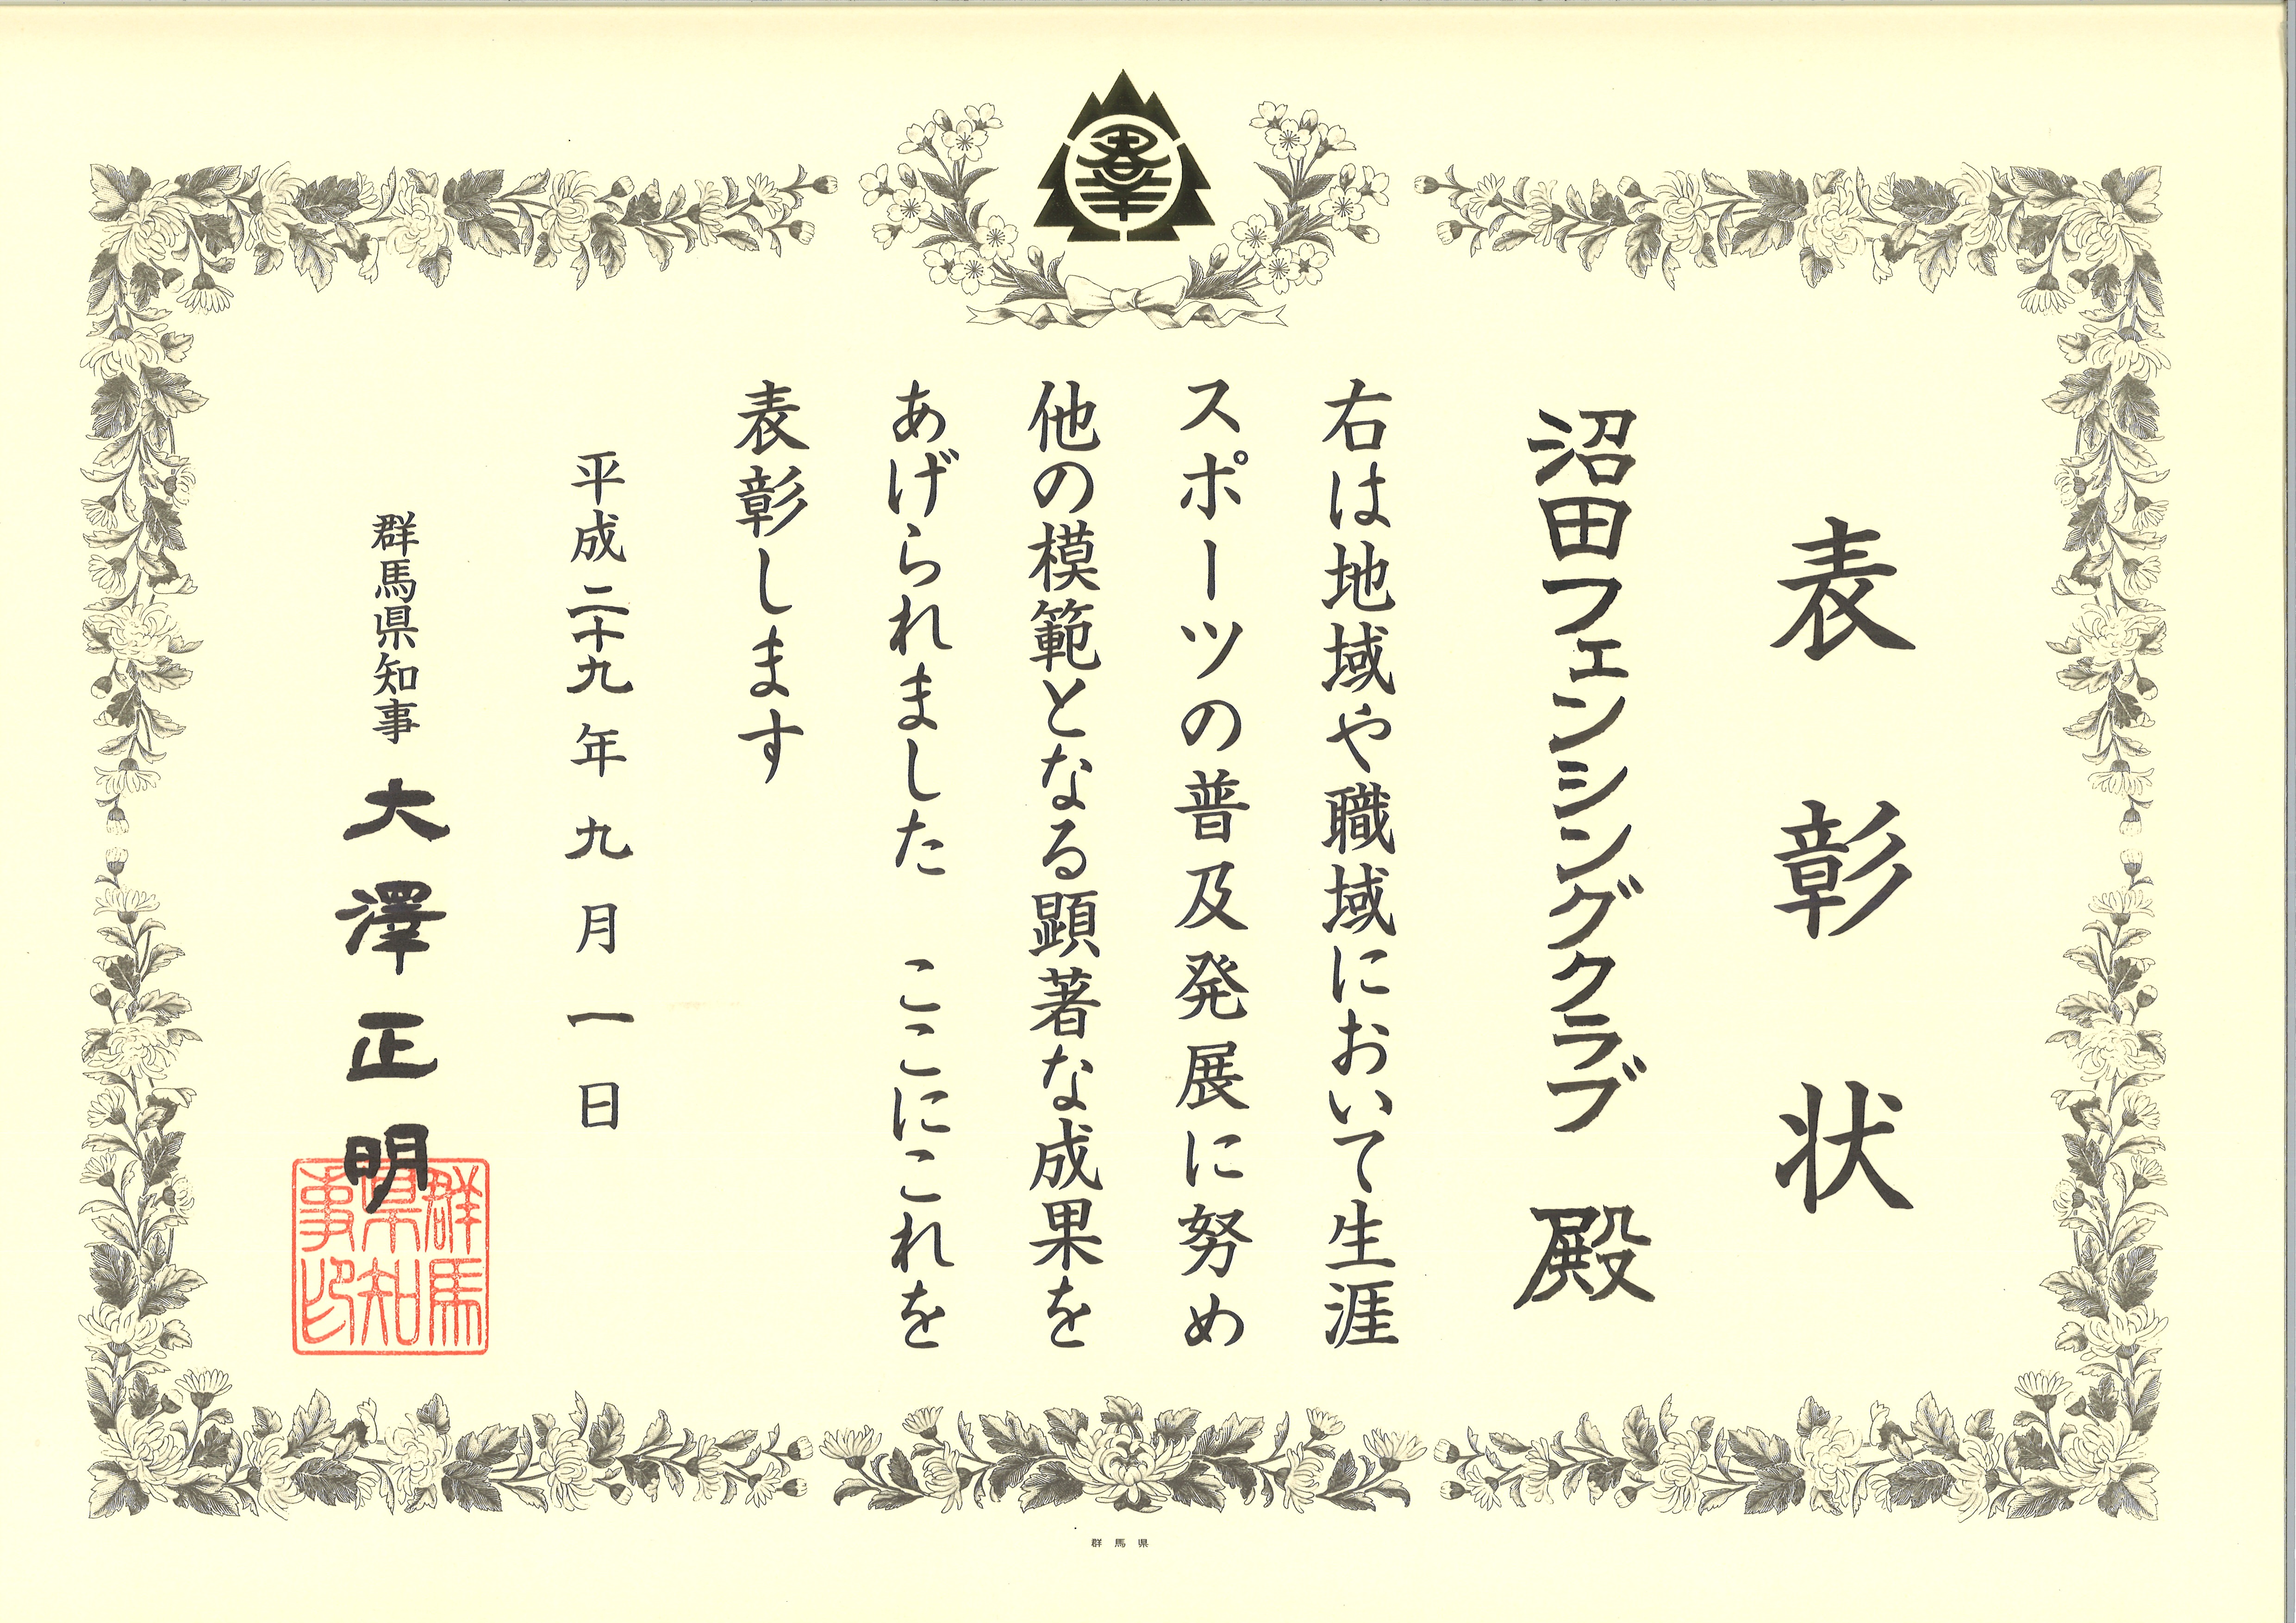 表彰状
沼田フェンシングクラブ 殿
右は地域や職域において生涯
スポーツの普及発展に努め
他の模範となる顕著な成果を
あげられました ここにこれを
表彰します
平成二十九年九月一日
群馬県知事 大澤正明
群馬県知事印
群馬県